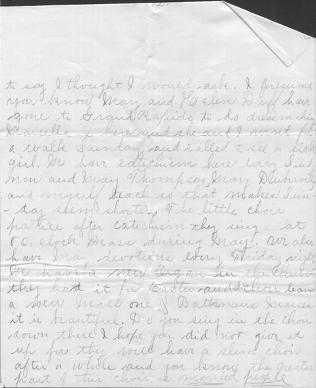 to say I thought I would ask. I presume
you know May and Helen have
gone to Grand Rapids to do dressmaking
Marcella is here and she and I went for
a walk Sunday and called to see a sick
girl. We have catechism here every Sunday
now and May Thompson, Mary
and myself teach so that makes Sun-
- day seem shorter. The little choir
practice after catechism they sing at
8 o. clock Mass during May. We also
have May devotions every Friday night
We have a new Organ in the Church
they had it for Easter and their learn
a new Mass one of Mass
it is beautiful. Do you sing in the choir
down there I hope you did not give it
up for they will have a slim choir
after a while and you know the greater
part of this choir is